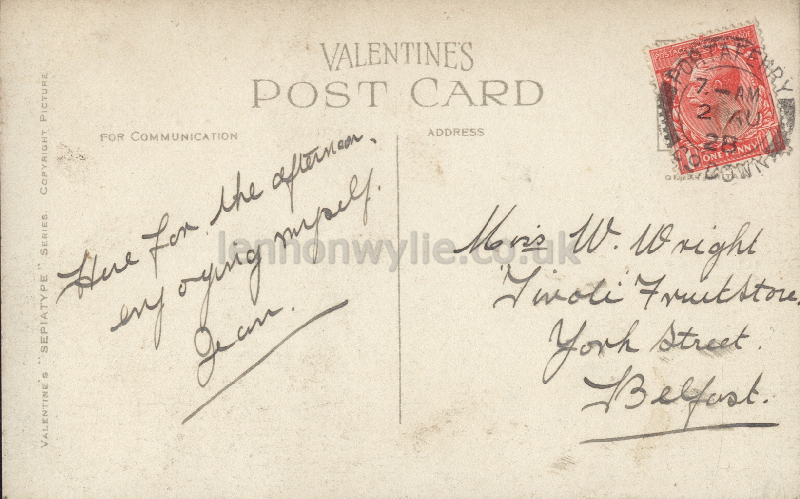 VALENTINE'S
POST CARD
FOR COMMUNICATION
ADDRESS
Here for the afternoon.
enjoying myself.
Jean.
Miss W. Wright
'Tivoli' Fruit Store,
York Street.
Belfast.
VALENTINE'S "SEPIATYPE" SERIES. COPYRIGHT PICTURE
PORTAFERRY
7. — AM
2 AU
28
CO. DOWN
POSTAGE
ONE PENNY
lennonwylie.co.uk